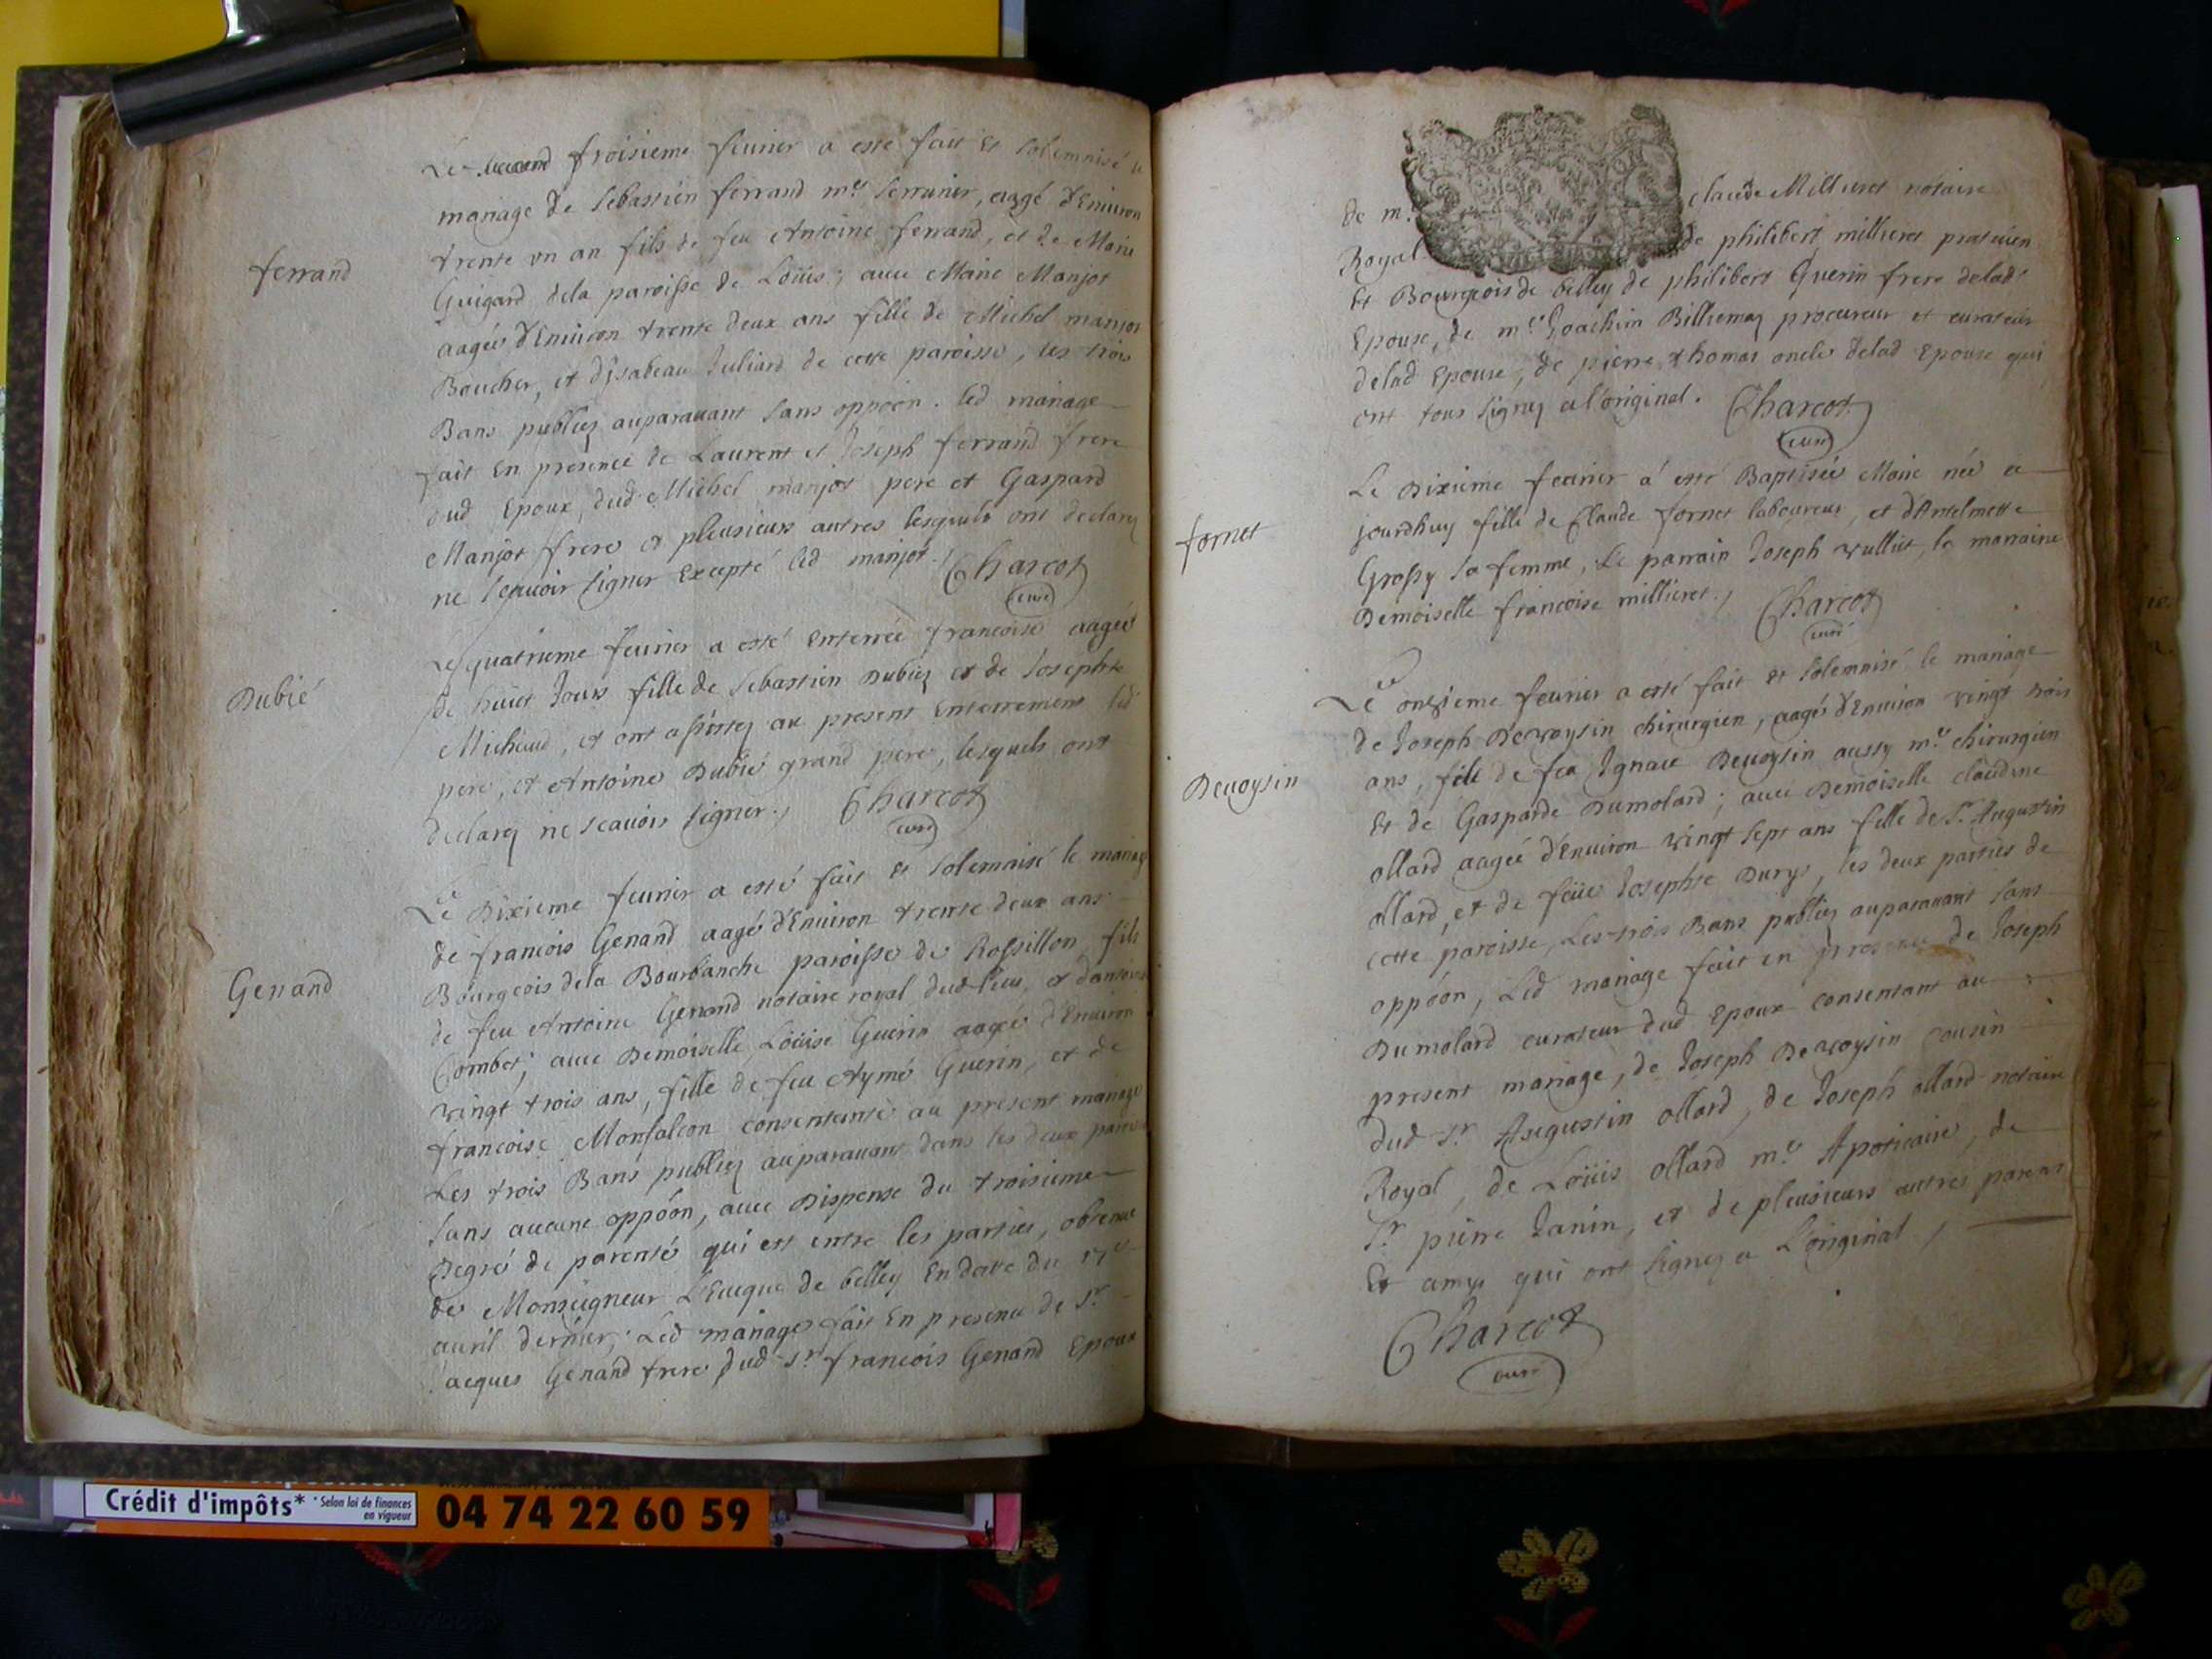 ferrand
Le troisieme feurier a esté fait et solemnisé le
mariage de Sebastien ferrand mre serrurier, aagé d'Enuiron
trente vn an fils de feu Antoine ferrand, et de Marie
Guigard dela paroisse de Loüis; auec Marie Manjot
aagée d'Enuiron trente deux ans fille de Michel manjot
Boucher, et d'ysabeau Juliard de cette paroisse, les trois
Bans publiez auparauant sans oppóon. led mariage
fait En presence de Laurent et Joseph ferrand frere
dud Epoux, dud Michel manjot pere et Gaspard
Manjot frere et pleusieurs autres lesquels ont declarez
ne scauoir signer Excepté led manjot. Charcot
curé
Dubié
Le quatrieme feurier a esté Enterrée francoise aagée
de huict Jours fille de Sebastien Dubiez et de Josephte
Michaud, et ont assistez au present Enterrement led
pere, et Antoine Dubié grand pere, lesquels ont
declarez ne scauoir signer., Charcot
curé
Genand
Le Dixieme feurier a esté fait et solemnisé le mariage
de francois Genand aagé d'Enuiron trente deux ans
Bourgeois dela Bourbanche paroisse de Rossillon, fils
de feu Antoine Genand notaire royal dud lieu, et
Combet; auec Demoiselle Loüise Guerin aagée d'Enuiron
vingt trois ans, fille de feu Aymé Guerin, et de
francoise Monfalcon consentante au present mariage
Les trois Bans publiez auparauant dans les deux
sans aucune oppóon, auec Dispense du troisieme
Degré de parenté qui est entre les parties, obtenue
de Monseigneur L'Eueque de belley En date du 17e
auril dernier; Led mariage fait En presence de Sr
Jacques Genand frere dud Sr francois Genand Epoux
de m. claude Millieret notaire
Royal de philibert millieret praticien
Et Bourgeois de belley de philibert Guerin frere delad
Epouse, de mre Joachim Billiemaz procureur et curateur
delad Epouse, de pierre thomas oncle delad Epouse qui
ont tous signez a l'original. Charcot
curé
fornet
Le Dixieme feurier a esté Baptisée Marie née a
jourdhuy fille de Claude fornet laboureur, et d'Antelmette
Grossy sa femme, Le parrain Joseph vulliet, la marraine
Demoiselle francoise millieret., Charcot
curé
Deuoysin
Le onzieme feurier a esté fait et solemnisé le mariage
de Joseph Devoysin chirurgien, aagé d'Enuiron vingt trois
ans, fils de feu Ignace Deuoysin aussy mre chirurgien
Et de Gasparde Dumolard; auec Demoiselle claudine
ollard aagée d'Enuiron vingt sept ans fille de Sr Augustin
ollard, et de feüe Josephte Dury, les deux parties de
cette paroisse, Les trois Bans publiez auparauant sans
oppóon, Led mariage fait en presence de Joseph
Dumolard curateur dud Epoux consentant au
present mariage, de Joseph Devoysin cousin
dud Sr Augustin ollard, de Joseph ollard notaire
Royal, de Loüis ollard mre Apoticaire, de
Sr pierre Janin, et de pleusieurs autres parens
Et amys qui ont signez a L'original,
Charcot
curé
Crédit d'impôts* * Selon loi de finances
en vigueur
04 74 22 60 59